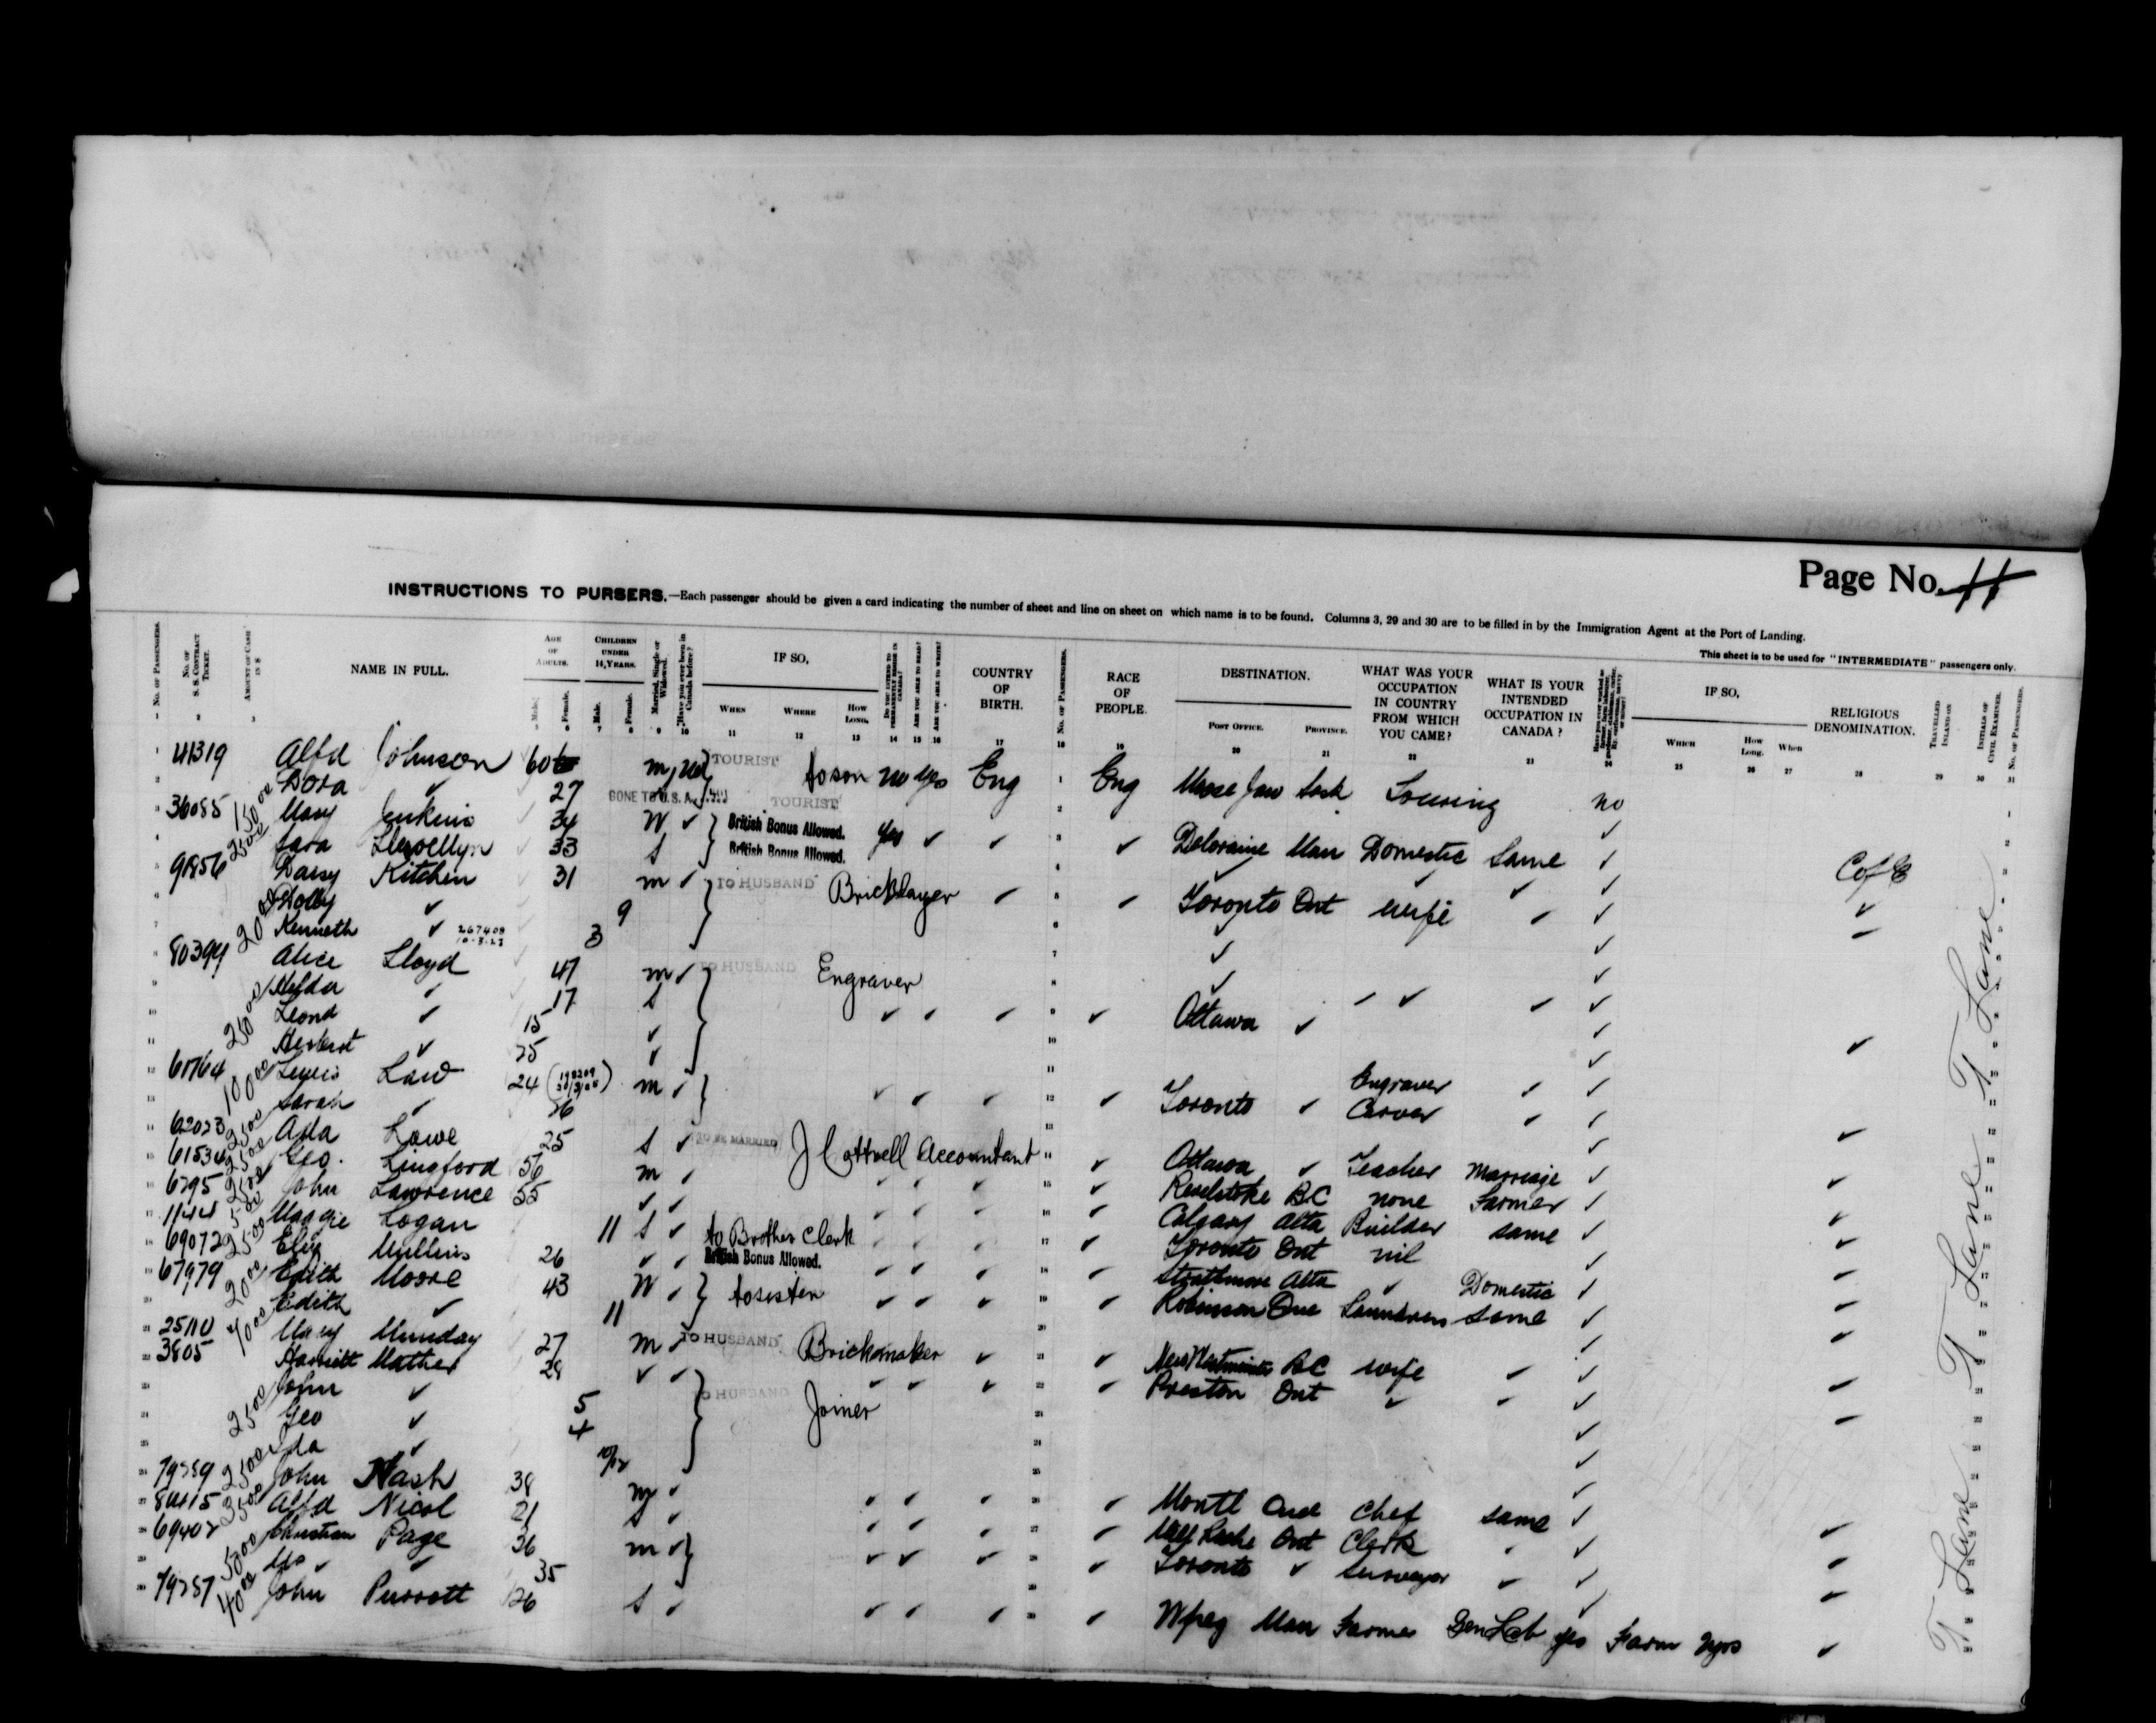 Page No. 11
INSTRUCTIONS TO PURSERS.—Each passenger should be given a card indicating the number of sheet and line on sheet on which name is to be found. Columns 3, 29 and 30 are to be filled in by the Immigration Agent at the Port of Landing.
This sheet is to be used for "INTERMEDIATE" passengers only.
No. of Passengers. No. of S. S. Contract Ticket. Amount of Cash in $ NAME IN FULL. Age of Adults. Children under 14 Years. Married, Single or Widowed. Have you ever been in Canada before? IF SO, Do you intend to permanently reside in Canada? Are you able to read? Are you able to write? COUNTRY OF BIRTH. No. of Passengers. RACE OF PEOPLE. DESTINATION. WHAT WAS YOUR OCCUPATION IN COUNTRY FROM WHICH YOU CAME? WHAT IS YOUR INTENDED OCCUPATION IN CANADA? IF SO, RELIGIOUS DENOMINATION. Travelled Inland on Initials of Civil Examiner. No. of Passengers.
Male. Female. Male. Female. When Where How Long. Post Office. Province. Which How Long. When
1 2 3 5 6 7 8 9 10 11 12 13 14 15 16 17 18 19 20 21 22 23 24 25 26 27 28 29 30 31
1 41319 Alfd Johnson 60 m no TOURIST to son no yes Eng 1 Eng Moose Jaw Sask Touring no
2 Dora ✓ 27 GONE TO U.S.A. TOURIST 2 ✓
3 36085 150 00 Mary Jenkins 34 W ✓ British Bonus Allowed. yes ✓ ✓ 3 ✓ Deloraine Man Domestic Same ✓ C of E
4 25 00 Sara Llewellyn 33 S British Bonus Allowed. ✓ ✓ ✓ ✓
5 91856 Daisy Kitchen 31 m ✓ TO HUSBAND Bricklayer ✓ ✓ Toronto Ont wife ✓ ✓
6 20 00 Dolly ✓ 9 6 ✓ ✓
7 Kenneth ✓ 267408 10-3-23 3 7 ✓ ✓
8 80394 Alice Lloyd 47 m ✓ TO HUSBAND Engraver 8 ✓ ✓ ✓ ✓
9 Hylda ✓ 17 S ✓ ✓ ✓ 9 ✓ Ottawa ✓ ✓
10 250 00 Leond ✓ 15 ✓ 10 ✓
11 Herbert ✓ 25 ✓ 11 Engraver ✓ ✓
12 61764 100 00 Lewis Law 24 m ✓ ✓ ✓ ✓ 12 ✓ Toronto ✓ Carver ✓ ✓
13 Sarah ✓ 26 13 ✓
14 62023 25 00 Ada Lowe 25 S ✓ TO BE MARRIED J Cottrell Accountant 14 ✓ Ottawa ✓ Teacher Marriage ✓
15 61534 25 00 Geo. Lingford 56 m ✓ ✓ ✓ ✓ 15 ✓ Revelstoke BC none Farmer ✓
16 6795 25 00 John Lawrence 55 ✓ ✓ ✓ ✓ ✓ 16 ✓ Calgary Alta Builder same ✓
17 1144 5 00 Maggie Logan 11 S ✓ to Brother Clerk ✓ ✓ ✓ 17 ✓ Toronto Ont nil ✓
18 69072 25 00 Eliz Mullins 26 ✓ ✓ British Bonus Allowed. ✓ ✓ ✓ 18 ✓ Strathmore Alta ✓ Domestic ✓
19 67979 20 00 Edith Moore 43 W ✓ to sister ✓ ✓ ✓ 19 ✓ Robinson Que Laundress same ✓
20 Edith ✓ 11 20 ✓
21 25110 70 00 Mary Munday 27 m ✓ TO HUSBAND Brickmaker ✓ 21 ✓ New Westminster BC wife ✓ ✓
22 3805 Harriett Mather 28 ✓ ✓ TO HUSBAND ✓ ✓ ✓ 22 ✓ Preston Ont ✓ ✓ ✓
23 25 00 John ✓ 5 Joiner ✓
24 Geo ✓ 4 24 ✓
25 Ida ✓ 10/12 25 ✓
26 79259 25 00 John Nash 38 m ✓ ✓ ✓ ✓ 26 ✓ Montl Que Chef same ✓
27 84415 35 00 Alfd Nicol 21 S ✓ ✓ ✓ ✓ 27 ✓ Ont Clerk ✓ ✓
28 69402 50 00 Christian Page 36 m ✓ ✓ ✓ ✓ 28 ✓ Toronto ✓ Surveyor ✓ ✓
29 Mrs ✓ ✓ 35 29 ✓
30 79257 40 00 John Purrott 26 S ✓ ✓ ✓ ✓ 30 ✓ Wpeg Man Farmer Gen Lab yes Farm 2yrs ✓
T. Lane T. Lane T. Lane T. Lane